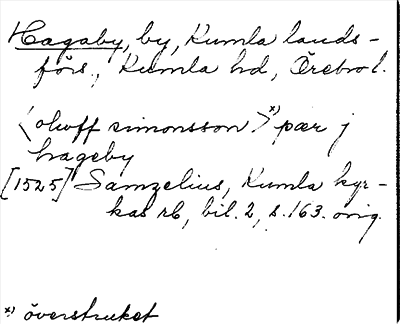 Hagaby, by, Kumla lands-
förs., Kumla hd, Örebro l.
<oluff simonsson>*) pær j
hageby
[1525] Samzelius, Kumla kyr-
kas rb, bil. 2, s. 163. orig.
*) överstruket